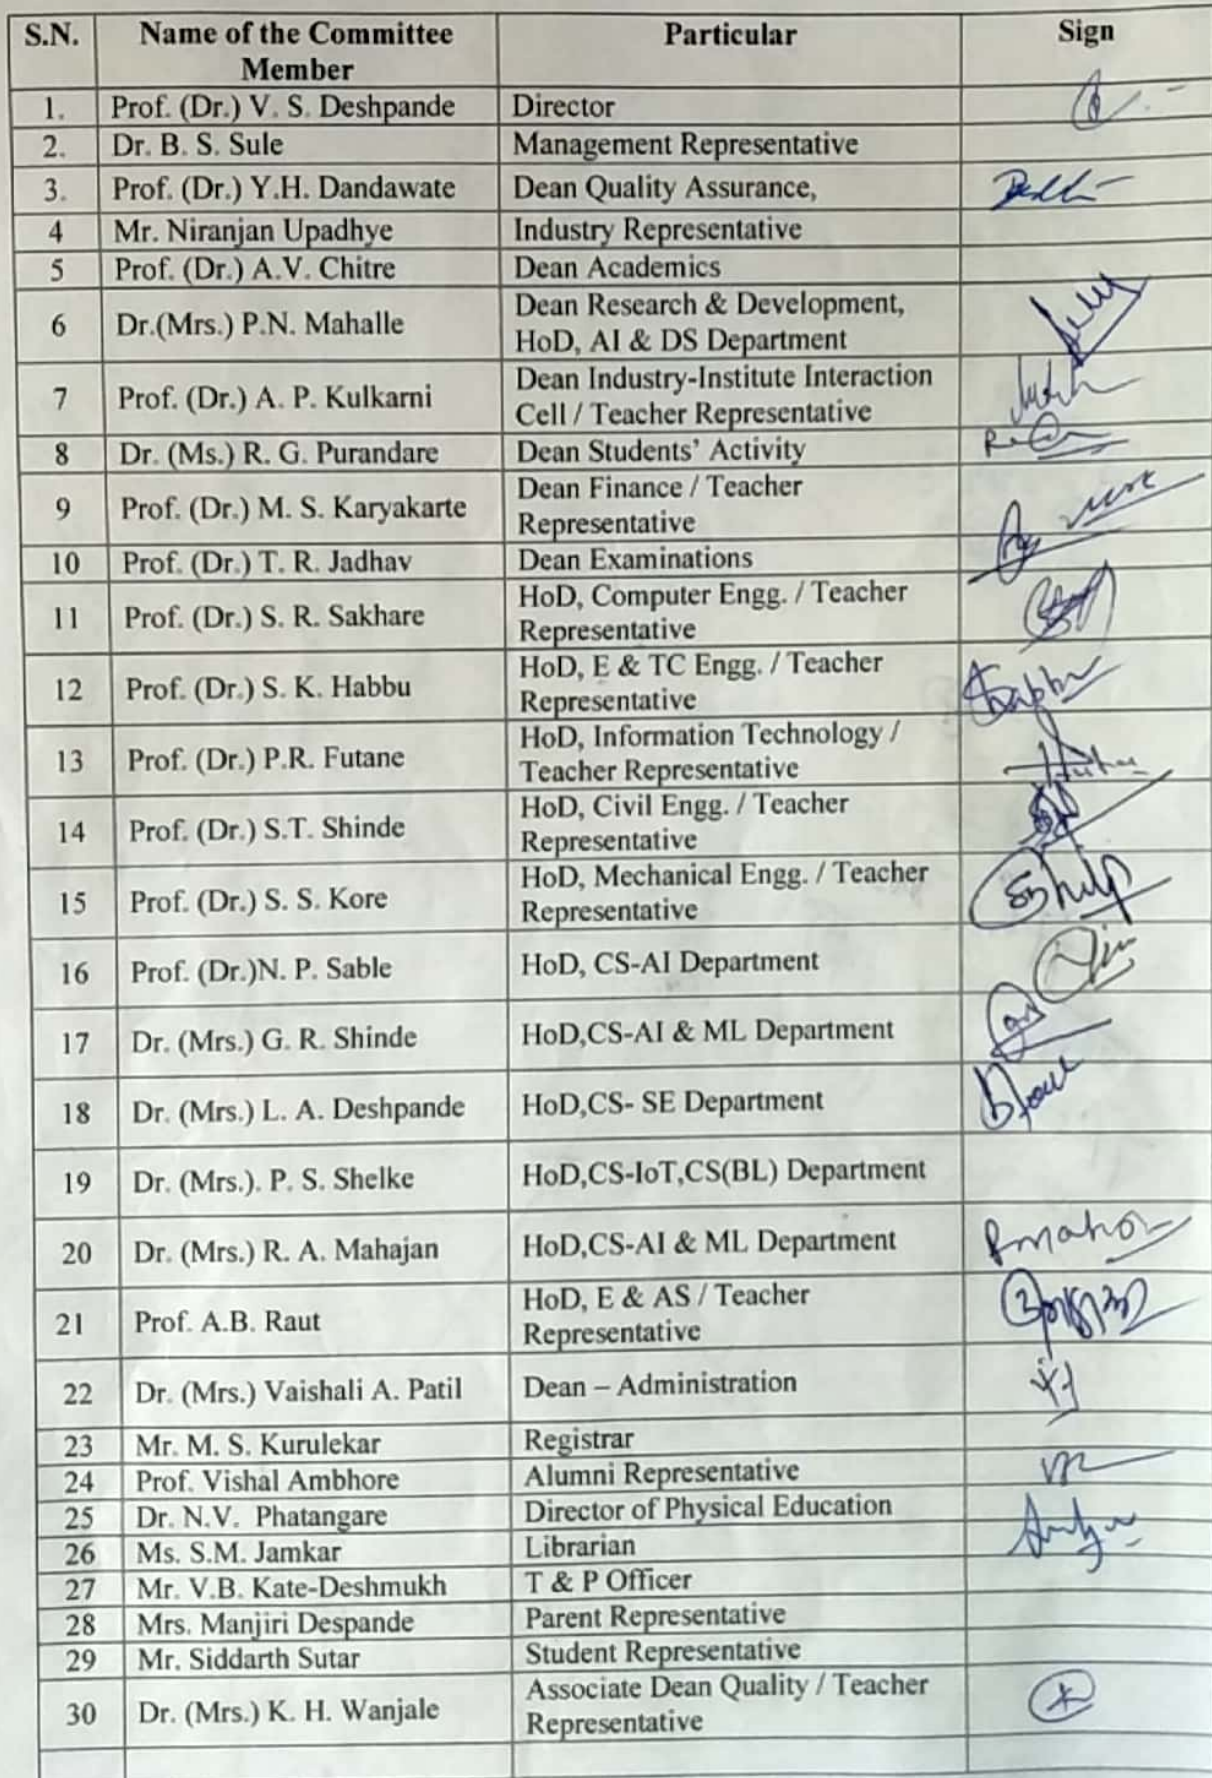 S.N. Name of the Committee Member Particular Sign
1. Prof. (Dr.) V. S. Deshpande Director
2. Dr. B. S. Sule Management Representative
3. Prof. (Dr.) Y.H. Dandawate Dean Quality Assurance,
4 Mr. Niranjan Upadhye Industry Representative
5 Prof. (Dr.) A.V. Chitre Dean Academics
6 Dr.(Mrs.) P.N. Mahalle Dean Research & Development,
HoD, AI & DS Department
7 Prof. (Dr.) A. P. Kulkarni Dean Industry-Institute Interaction
Cell / Teacher Representative
8 Dr. (Ms.) R. G. Purandare Dean Students' Activity
9 Prof. (Dr.) M. S. Karyakarte Dean Finance / Teacher
Representative
10 Prof. (Dr.) T. R. Jadhav Dean Examinations
11 Prof. (Dr.) S. R. Sakhare HoD, Computer Engg. / Teacher
Representative
12 Prof. (Dr.) S. K. Habbu HoD, E & TC Engg. / Teacher
Representative
13 Prof. (Dr.) P.R. Futane HoD, Information Technology /
Teacher Representative
14 Prof. (Dr.) S.T. Shinde HoD, Civil Engg. / Teacher
Representative
15 Prof. (Dr.) S. S. Kore HoD, Mechanical Engg. / Teacher
Representative
16 Prof. (Dr.)N. P. Sable HoD, CS-AI Department
17 Dr. (Mrs.) G. R. Shinde HoD,CS-AI & ML Department
18 Dr. (Mrs.) L. A. Deshpande HoD,CS- SE Department
19 Dr. (Mrs.). P. S. Shelke HoD,CS-IoT,CS(BL) Department
20 Dr. (Mrs.) R. A. Mahajan HoD,CS-AI & ML Department
21 Prof. A.B. Raut HoD, E & AS / Teacher
Representative
22 Dr. (Mrs.) Vaishali A. Patil Dean – Administration
23 Mr. M. S. Kurulekar Registrar
24 Prof. Vishal Ambhore Alumni Representative
25 Dr. N.V. Phatangare Director of Physical Education
26 Ms. S.M. Jamkar Librarian
27 Mr. V.B. Kate-Deshmukh T & P Officer
28 Mrs. Manjiri Despande Parent Representative
29 Mr. Siddarth Sutar Student Representative
30 Dr. (Mrs.) K. H. Wanjale Associate Dean Quality / Teacher
Representative